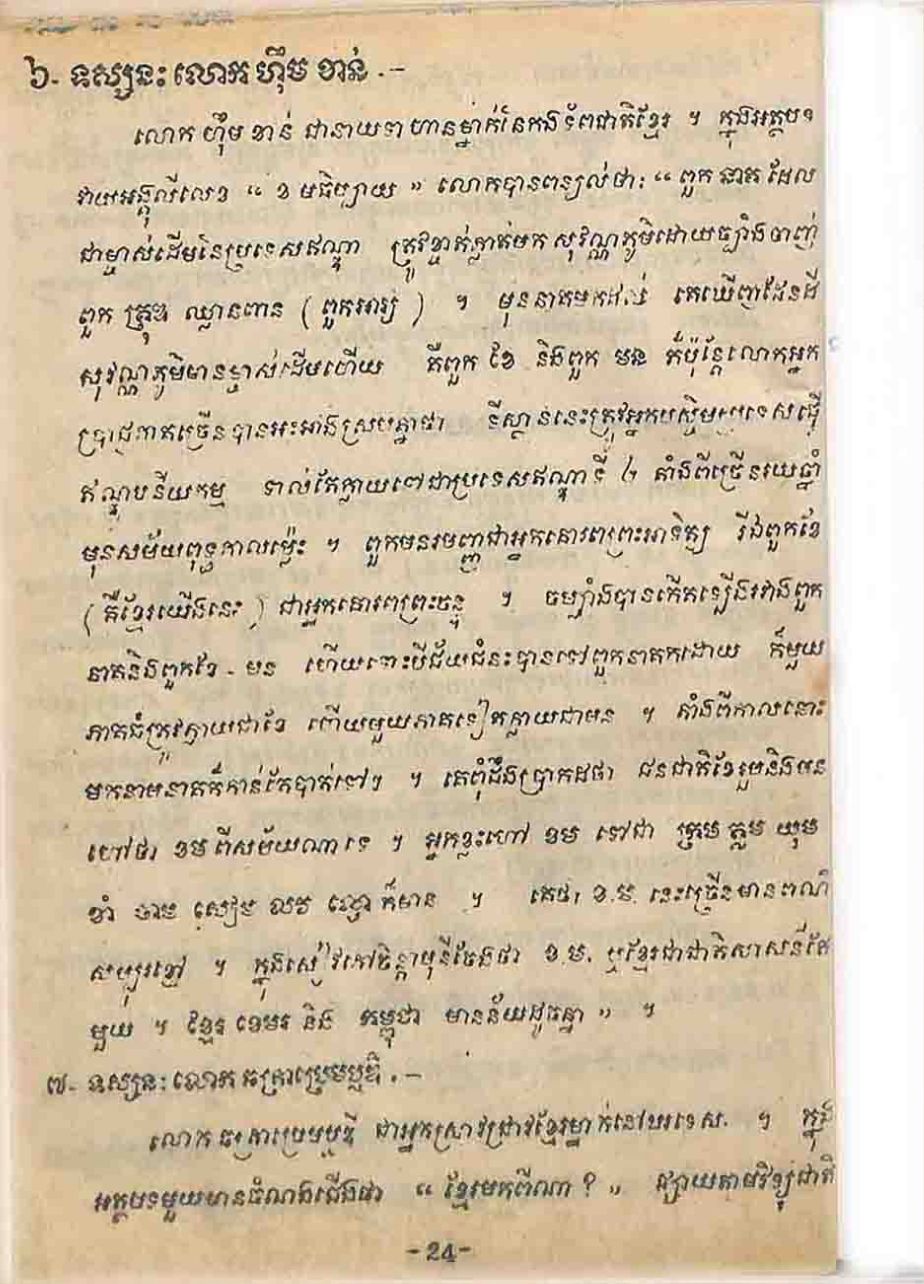 ៦- ទស្សនៈលោក ហ៊ឹម ខាន់ .-
លោក ហ៊ឹម ខាន់ ជានាយទាហានម្នាក់នៃកងទ័ពជាតិខ្មែរ ។ ក្នុងអត្ថបទ
វាយអង្គុលីលេខ “ ខ មធិប្បាយ ” លោកបានពន្យល់ថា: “ ពួក នាគ ដែល
ជាម្ចាស់ដើមនៃប្រទេសឥណ្ឌា ត្រូវខ្ចាត់ព្រាត់មក សុវណ្ណភូមិដោយច្បាំងចាញ់
ពួក គ្រុឌ ឈ្លានពាន ( ពួកអារ្យ ) ។ មុននាគមកដល់ គេឃើញដែនដី
សុវណ្ណភូមិមានម្ចាស់ដើមហើយ គឺពួក ខែ និងពួក មន ក៏ប៉ុន្តែលោកអ្នក
ប្រាជ្ញភាគច្រើនបានអះអាងស្របគ្នាថា ទីស្ថាននេះត្រូវអ្នកបស្ចឹមប្រទេសធ្វើ
ឥណ្ឌូបនីយកម្ម ទាល់តែក្លាយទៅជាប្រទេសឥណ្ឌាទី ២ តាំងពីច្រើនរយឆ្នាំ
មុនសម័យពុទ្ធកាលម្ល៉េះ ។ ពួកមនរមញ្ញជាអ្នកគោរពព្រះអាទិត្យ រីឯពួកខែ
( គឺខ្មែរយើងនេះ ) ជាអ្នកគោរពព្រះចន្ទ ។ ចម្បាំងបានកើតឡើងរវាងពួក
នាគនិងពួកខែ - មន ហើយទោះបីជ័យជំនះបានទៅពួកនាគក៏ដោយ ក៏មួយ
ភាគធំត្រូវក្លាយជាខែ ហើយមួយភាគទៀតក្លាយជាមន ។ តាំងពីកាលនោះ
មកនាមនាគក៏កាន់តែបាត់ទៅៗ ។ គេពុំដឹងប្រាកដថា ជនជាតិខែរួមនិងមន
ហៅថា ខម ពីសម័យណាទេ ។ អ្នកខ្លះហៅ ខម ទៅជា ក្រម គ្លម យុម
ខាំ ចាម សៀម លវ ល្វោ ក៏មាន ។ គេថា ខ.ម. នេះច្រើនមានពណ៌
សម្បុរខ្មៅ ។ ក្នុងសៀវភៅចិន្តាមុនីចែងថា ខ.ម. ឬខ្មែរជាជាតិសាសន៍តែ
មួយ ។ ខ្មែរ ខេមរ និង កម្ពុជា មានន័យដូចគ្នា ” ។
៧- ទស្សនៈលោក
លោក ជាអ្នកស្រាវជ្រាវខ្មែរម្នាក់នៅបរទេស. ។ ក្នុង
អត្ថបទមួយមានចំណងជើងថា “ ខ្មែរមកពីណា ? ” ផ្សាយតាមវិទ្យុជាតិ
-24-